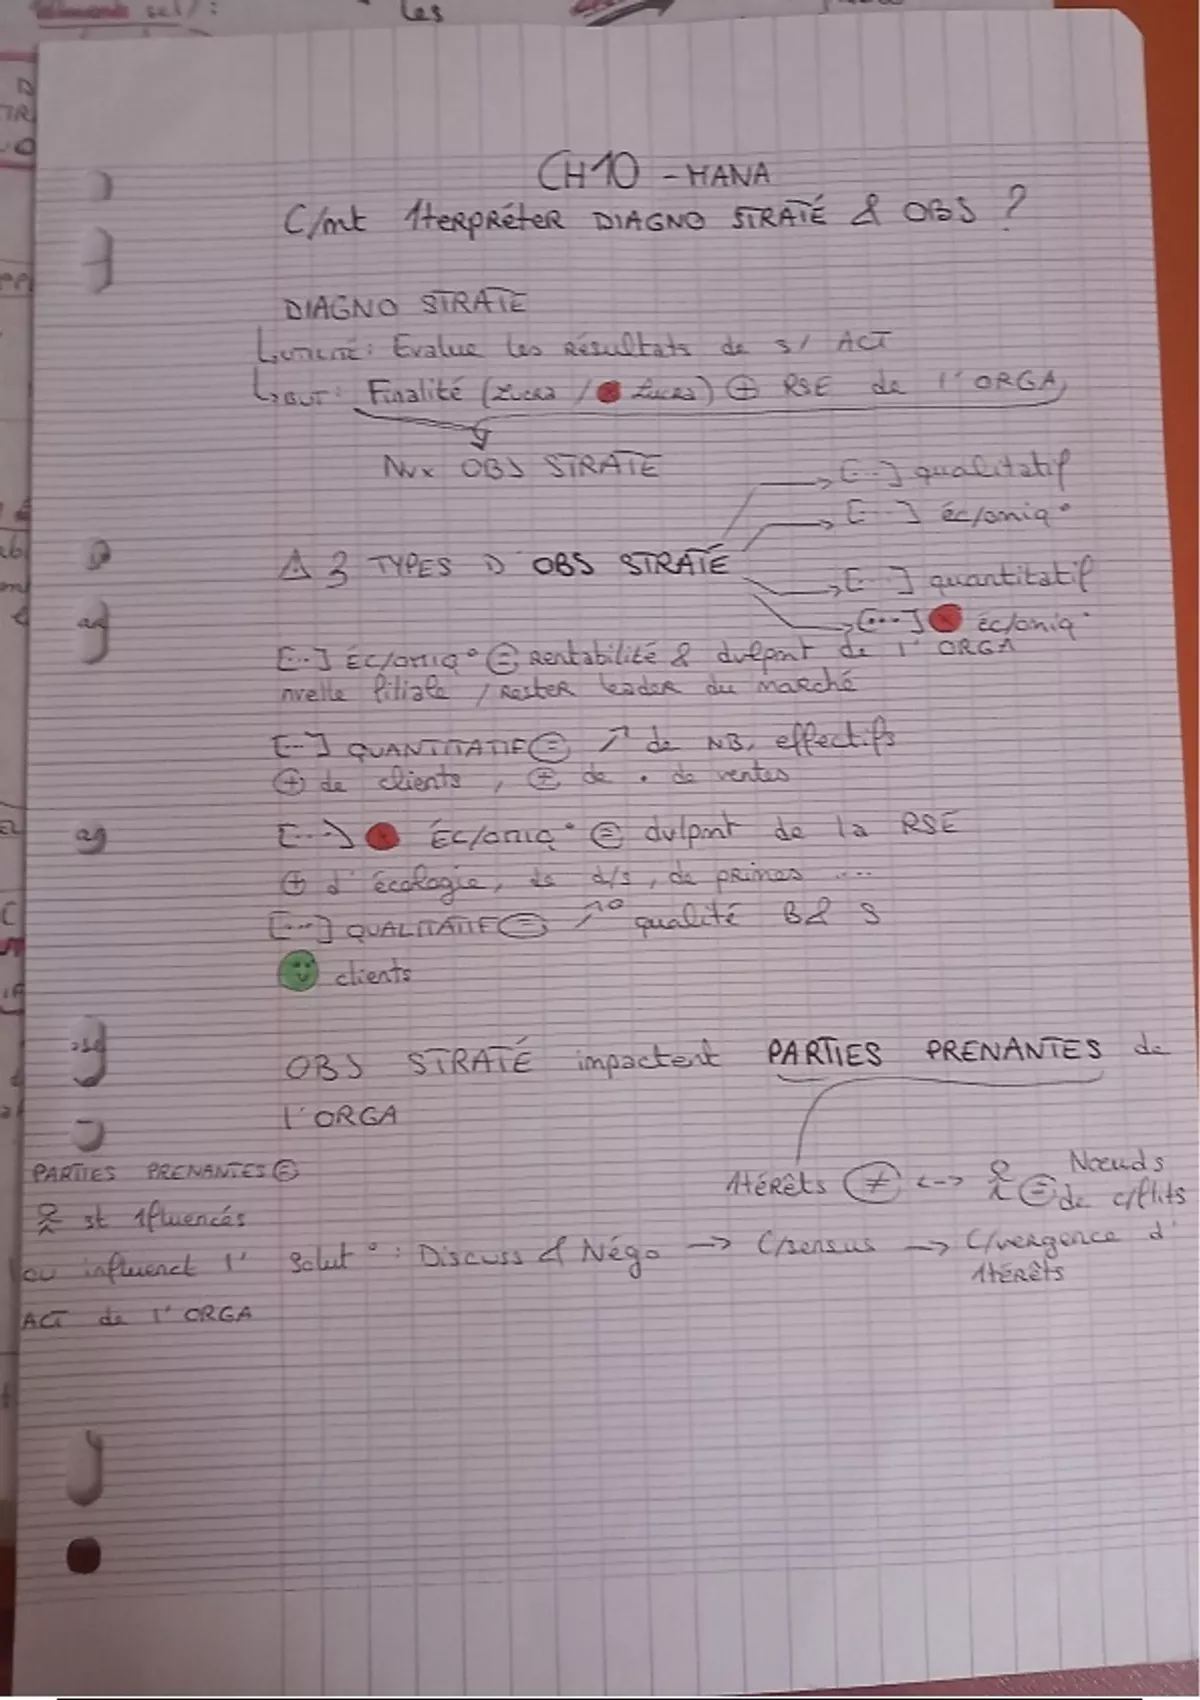 les
CH10 - MANA
C/mt 1terpréter DIAGNO STRATÉ & OBJ ?
DIAGNO STRATE
↳ UTILITÉ : Evalue les résultats de s/ ACT
↳ BUT : Finalité (Lucra / Lucra) ⊕ RSE de l'ORGA
Nvx OBJ STRATE
[...] qualitatif
[...] éc/omiq°
Δ 3 TYPES D'OBJ STRATÉ
[...] quantitatif
[...] × éc/oniq°
[...] ÉC/omiq° ⊜ Rentabilité & dvlpmt de l'ORGA
nvelle filiale / Rester leader du marché
[...] QUANTITATIF ⊜ ↗ de NB, effectifs
⊕ de clients, ⊕ de . de ventes
[...] × ÉC/oniq° ⊜ dvlpmt de la RSE
⊕ d'écologie, de d/s, de primes ....
[...] QUALITATIF ⊜ ↗° qualité B & S
clients
OBJ STRATÉ impactent PARTIES PRENANTES de
l'ORGA
PARTIES PRENANTES ⊜
1térêts ≠ <-> ⊜ Nœuds de c/flits
st 1fluencés
ou influencet l'
ACT de l'ORGA
Solut° : Discuss & Négo → C/sensus → C/vergence d'
1térêts